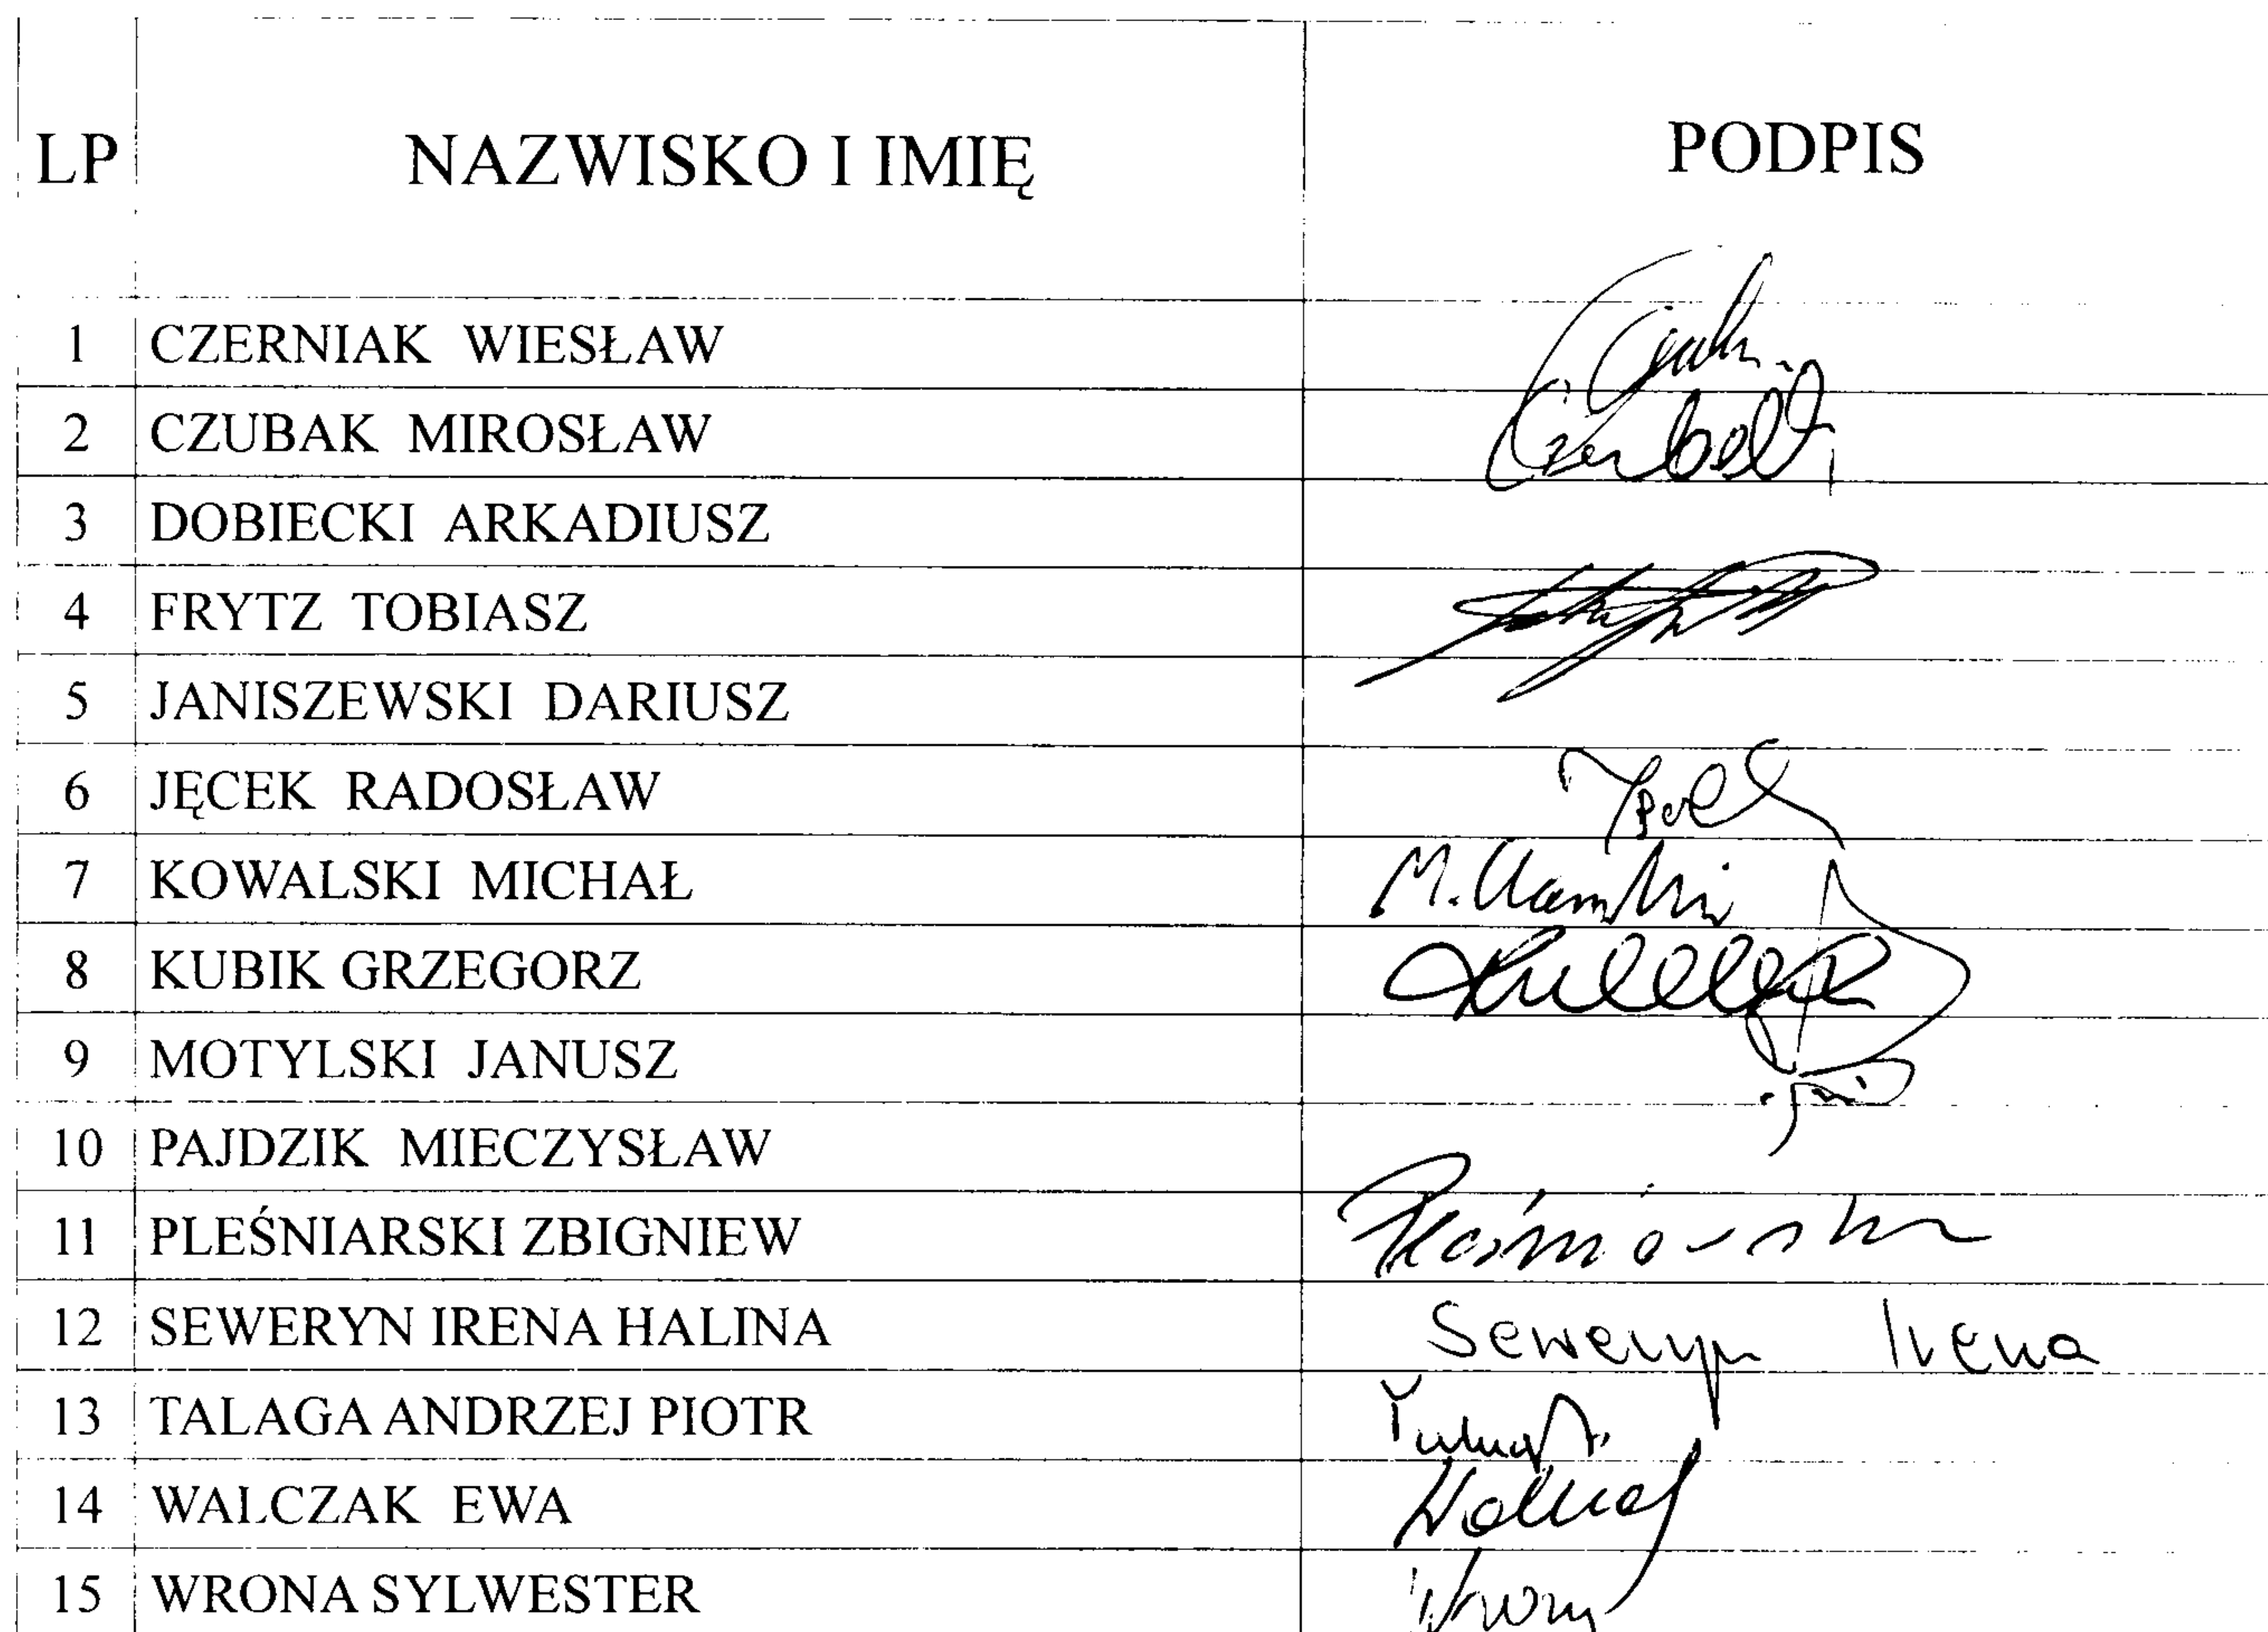 LP NAZWISKO I IMIĘ PODPIS
1 CZERNIAK WIESŁAW
2 CZUBAK MIROSŁAW
3 DOBIECKI ARKADIUSZ
4 FRYTZ TOBIASZ
5 JANISZEWSKI DARIUSZ
6 JĘCEK RADOSŁAW
7 KOWALSKI MICHAŁ M.
8 KUBIK GRZEGORZ
9 MOTYLSKI JANUSZ
10 PAJDZIK MIECZYSŁAW
11 PLEŚNIARSKI ZBIGNIEW
12 SEWERYN IRENA HALINA Seweryn Irena
13 TALAGA ANDRZEJ PIOTR
14 WALCZAK EWA
15 WRONA SYLWESTER